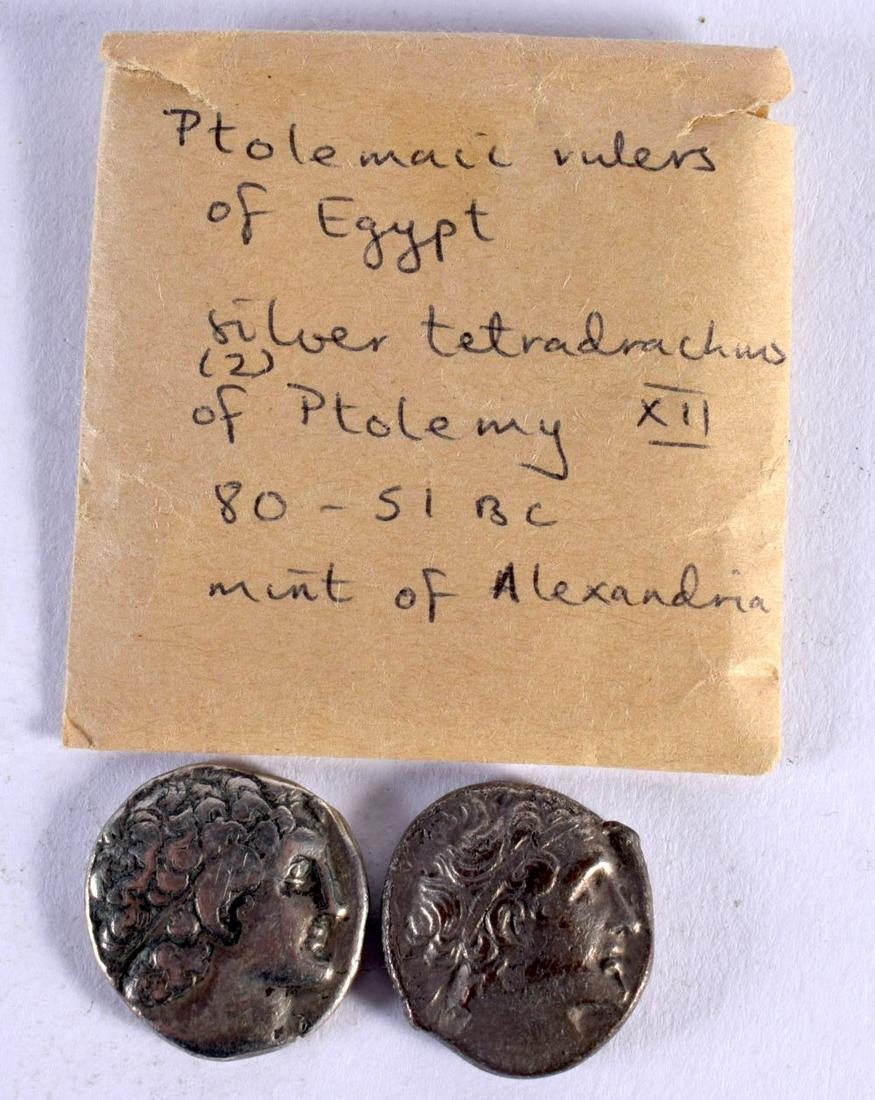 Ptolemaic rulers
of Egypt
silver tetradrachms
(2)
of Ptolemy XII
80 - 51 BC
mint of Alexandria